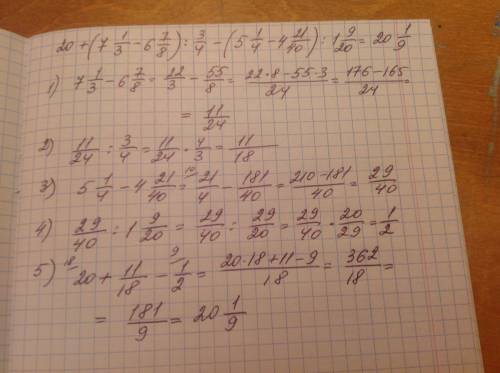 20 + (7 1/3 − 6 7/8) : 3/4 − (5 1/4 − 4 21/40) : 1 9/20 = 20 1/9
1) 7 1/3 − 6 7/8 = 22/3 − 55/8 = (22·8 − 55·3)/24 = (176 − 165)/24 =
= 11/24
2) 11/24 : 3/4 = 11/24 · 4/3 = 11/18
3) 5 1/4 − 4 21/40 = 21/4 − 181/40 = (210 − 181)/40 = 29/40
4) 29/40 : 1 9/20 = 29/40 : 29/20 = 29/40 · 20/29 = 1/2
5) 20 + 11/18 − 1/2 = (20·18 + 11 − 9)/18 = 362/18 =
= 181/9 = 20 1/9